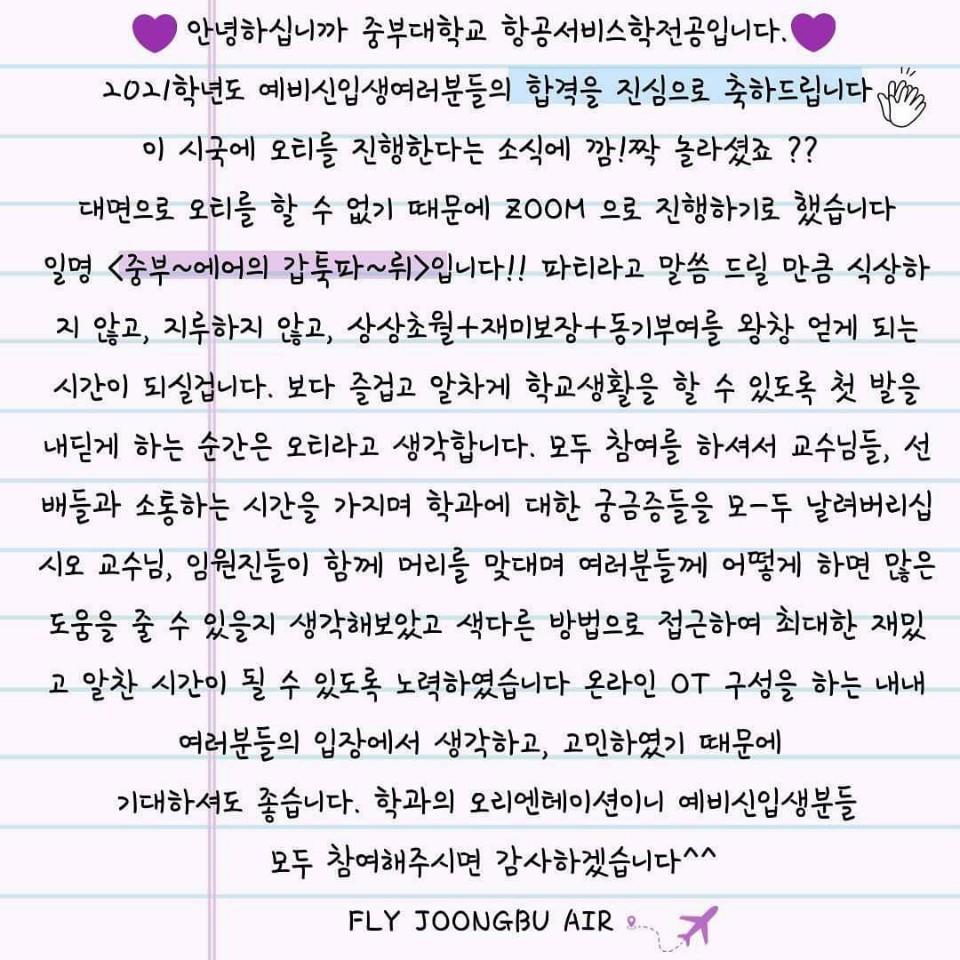 안녕하십니까 중부대학교 항공서비스학전공입니다.
2021학년도 예비신입생여러분들의 합격을 진심으로 축하드립니다
이 시국에 오티를 진행한다는 소식에 깜!짝 놀라셨죠 ??
대면으로 오티를 할 수 없기 때문에 ZOOM 으로 진행하기로 했습니다
일명 <중부~에어의 갑툭파~뤼>입니다!! 파티라고 말씀 드릴 만큼 식상하
지 않고, 지루하지 않고, 상상초월+재미보장+동기부여를 왕창 얻게 되는
시간이 되실겁니다. 보다 즐겁고 알차게 학교생활을 할 수 있도록 첫 발을
내딛게 하는 순간은 오티라고 생각합니다. 모두 참여를 하셔서 교수님들, 선
배들과 소통하는 시간을 가지며 학과에 대한 궁금증들을 모-두 날려버리십
시오 교수님, 임원진들이 함께 머리를 맞대며 여러분들께 어떻게 하면 많은
도움을 줄 수 있을지 생각해보았고 색다른 방법으로 접근하여 최대한 재밌
고 알찬 시간이 될 수 있도록 노력하였습니다 온라인 OT 구성을 하는 내내
여러분들의 입장에서 생각하고, 고민하였기 때문에
기대하셔도 좋습니다. 학과의 오리엔테이션이니 예비신입생분들
모두 참여해주시면 감사하겠습니다^^
FLY JOONGBU AIR